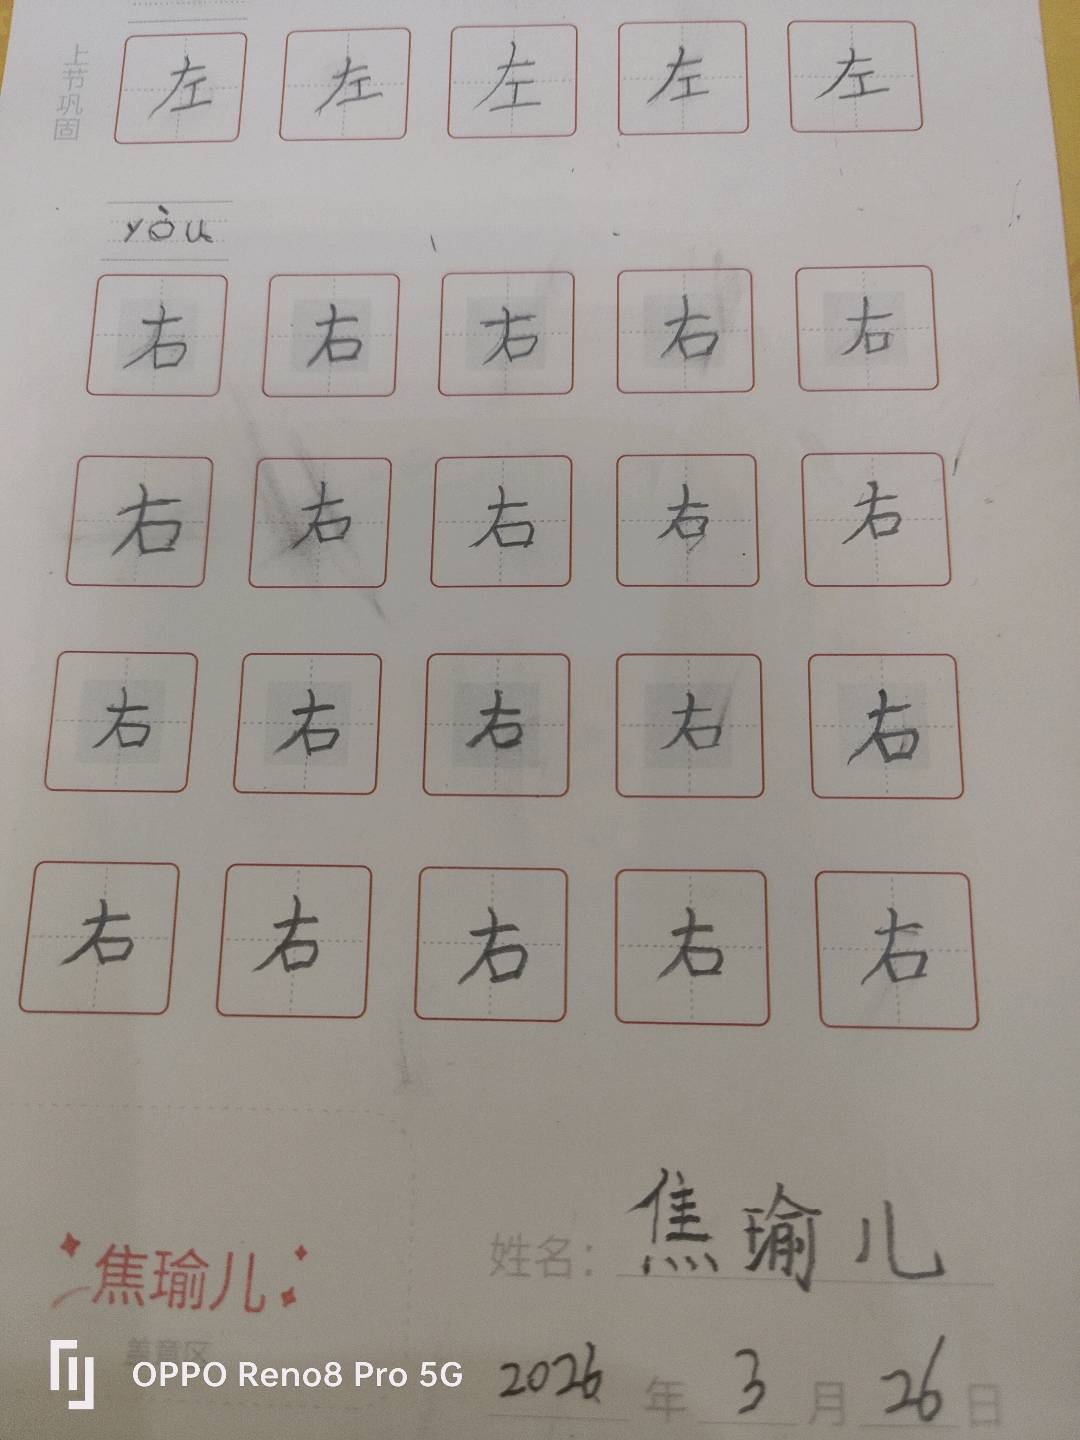 上节巩固
左 左 左 左 左
yòu
右 右 右 右 右
右 右 右 右 右
右 右 右 右 右
右 右 右 右 右
姓名：焦瑜儿
焦瑜儿
盖章区
2026 年 3 月 26 日
OPPO Reno8 Pro 5G